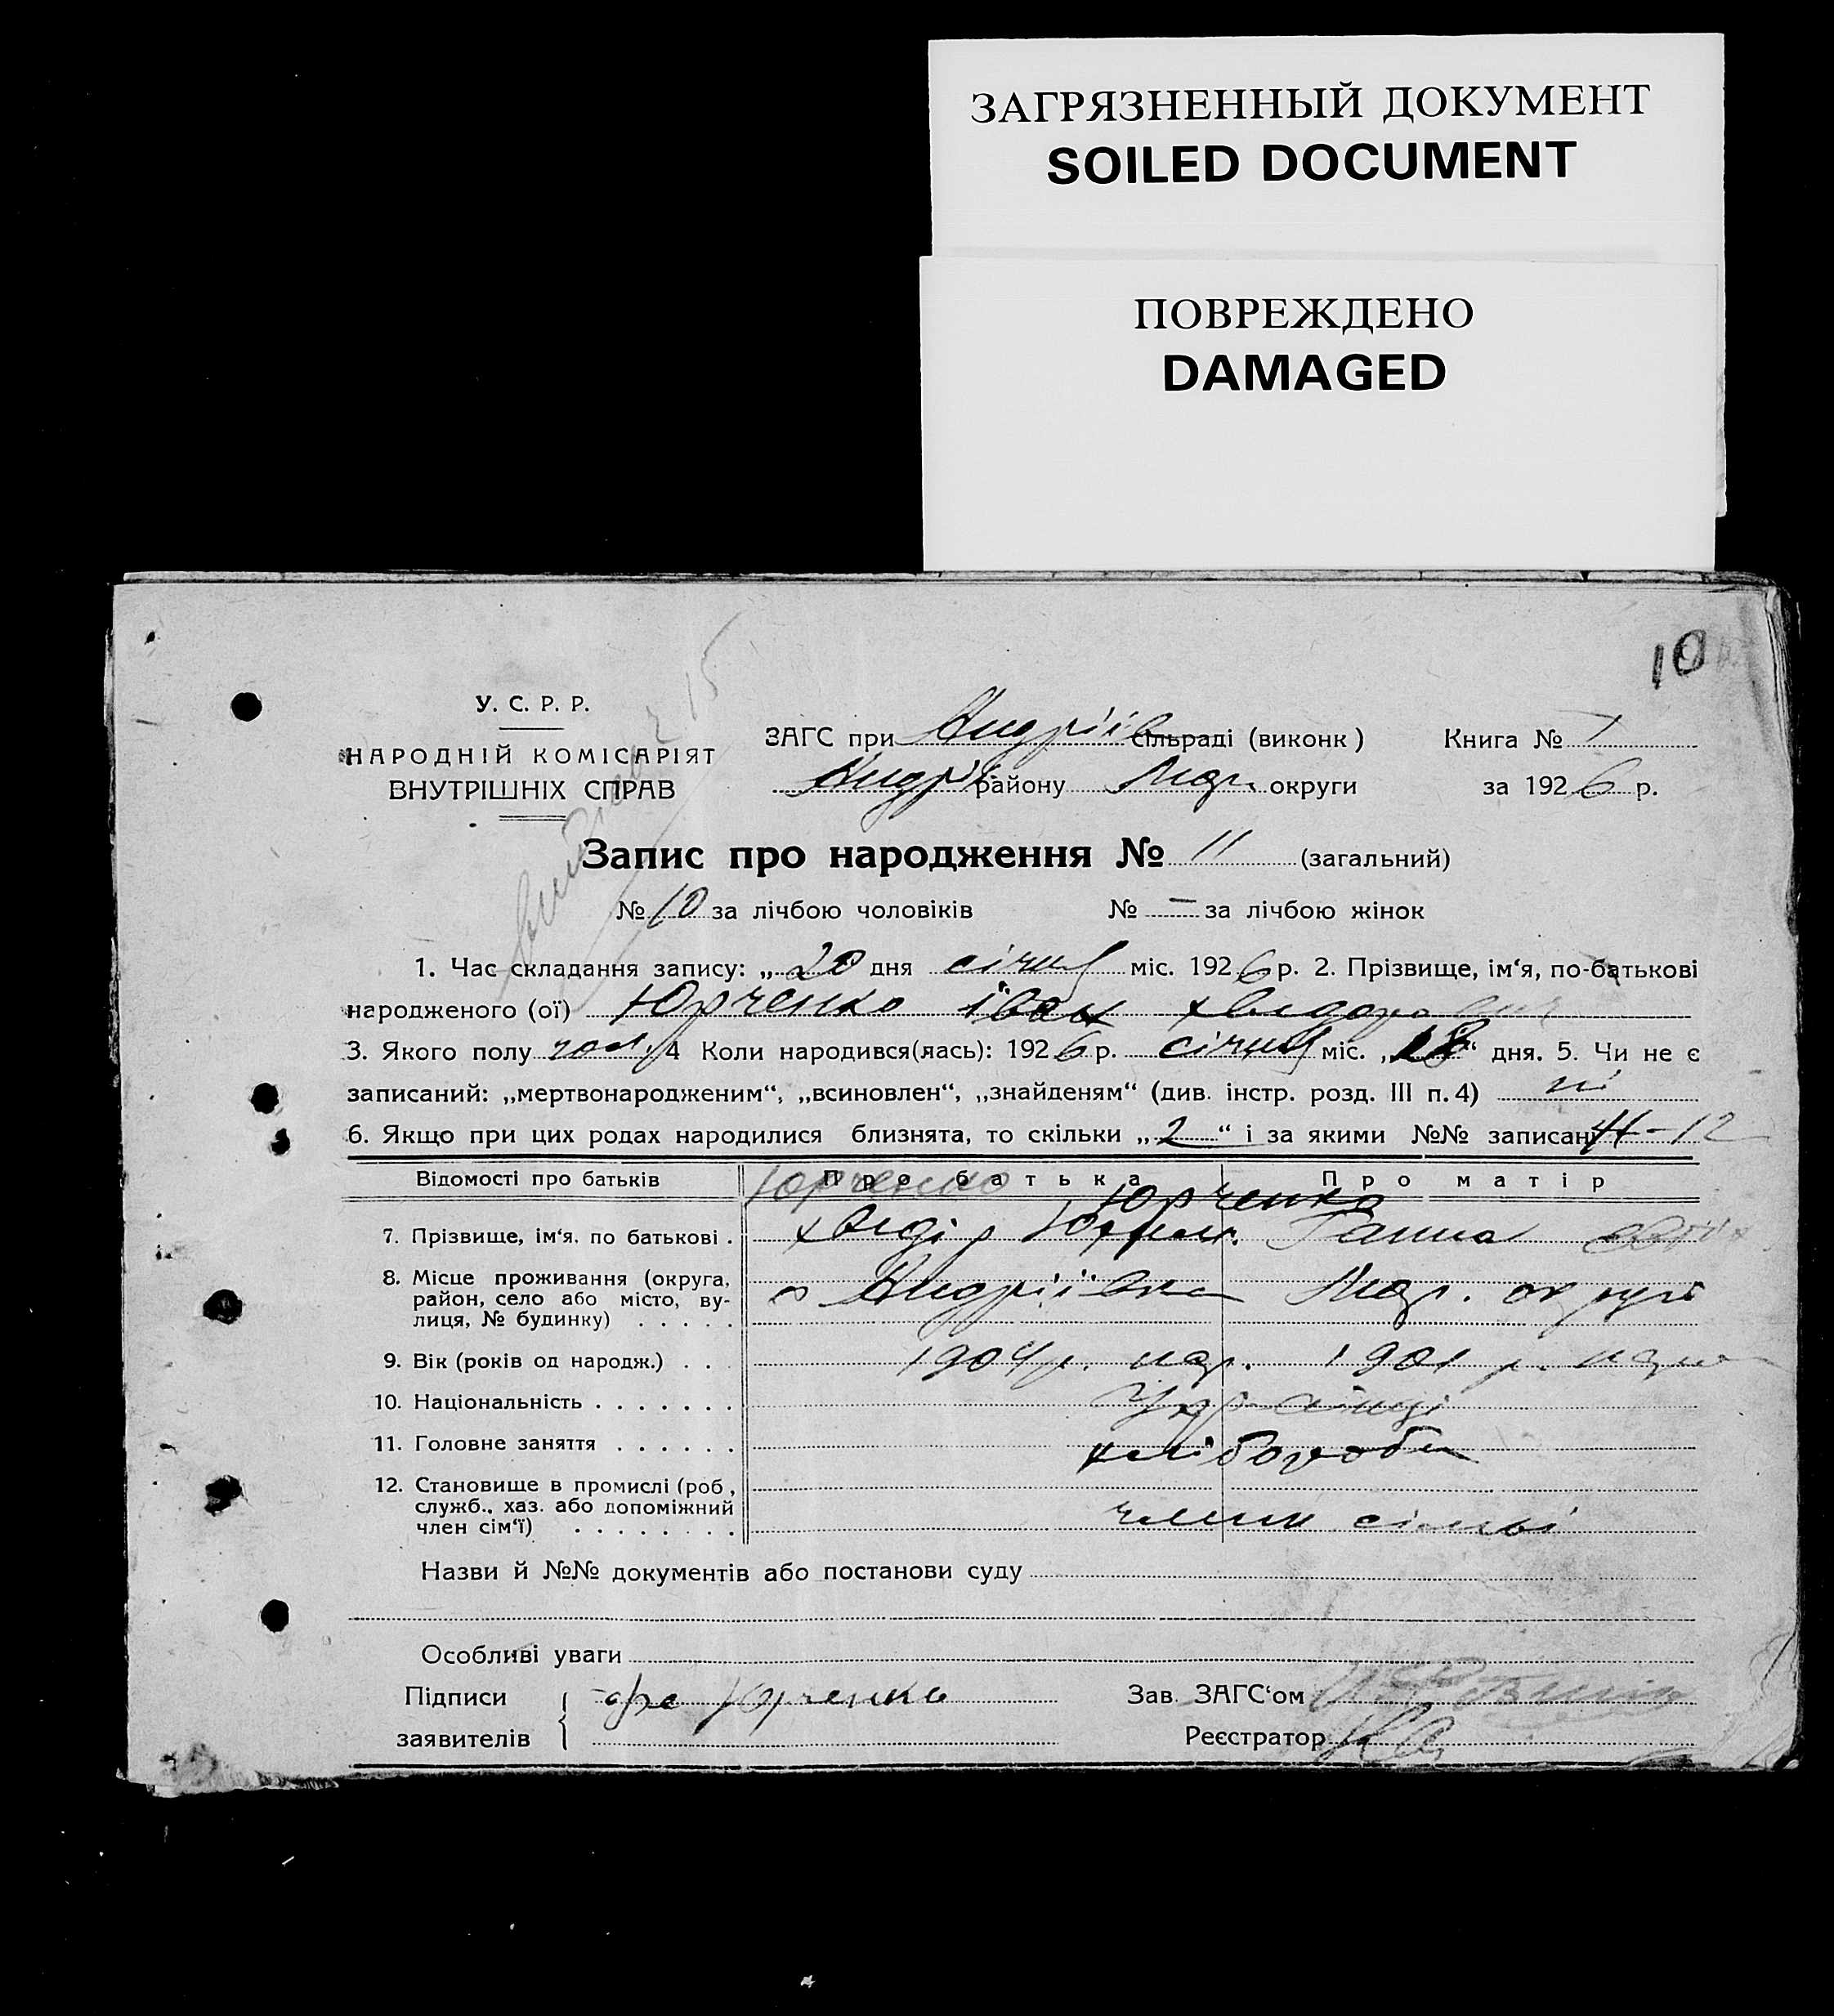 ЗАГРЯЗНЕННЫЙ ДОКУМЕНТ
SOILED DOCUMENT
ПОВРЕЖДЕНО
DAMAGED
10
У. С. Р. Р.
НАРОДНІЙ КОМІСАРІЯТ
ВНУТРІШНІХ СПРАВ
ЗАГС при Андріїв сільраді (виконк) Книга № 1
Андрії району Мар. округи за 1926 р.
15
Запис про народження № 11 (загальний)
№ 10 за лічбою чоловіків № — за лічбою жінок
1. Час складання запису: „ 20 дня січня міс. 1926 р. 2. Прізвище, ім‘я, по-батькові
народженого (ої) Юрченко Іван Хведорович
3. Якого полу чол. 4 Коли народився(лась): 1926 р. січня міс. „ 18 “ дня. 5. Чи не є
записаний: „мертвонародженим“, „всиновлен“, „знайденям“ (див. інстр. розд. III п. 4) ні
6. Якщо при цих родах народилися близнята, то скільки „ 2 “ і за якими №№ записані 11-12
Відомості про батьків Про батька Про матір
Юрченко Юрченко
7. Прізвище, ім‘я, по батькові . Хведір Ганна
8. Місце проживання (округа, район, село або місто, вулиця, № будинку) . . . . . с Андріївка Мар. округи
9. Вік (років од народж.) . . . 1904 р. нар. 1901 р. нар
10. Національність . . . . . . . Українці
11. Головне заняття . . . . . . хлібороби
12. Становище в промислі (роб, служб., хаз. або допоміжний член сім‘ї) . . . . . . . . член сімьї
Назви й №№ документів або постанови суду
Особливі уваги
Підписи Юрченко Зав. ЗАГС‘ом
заявителів Реєстратор